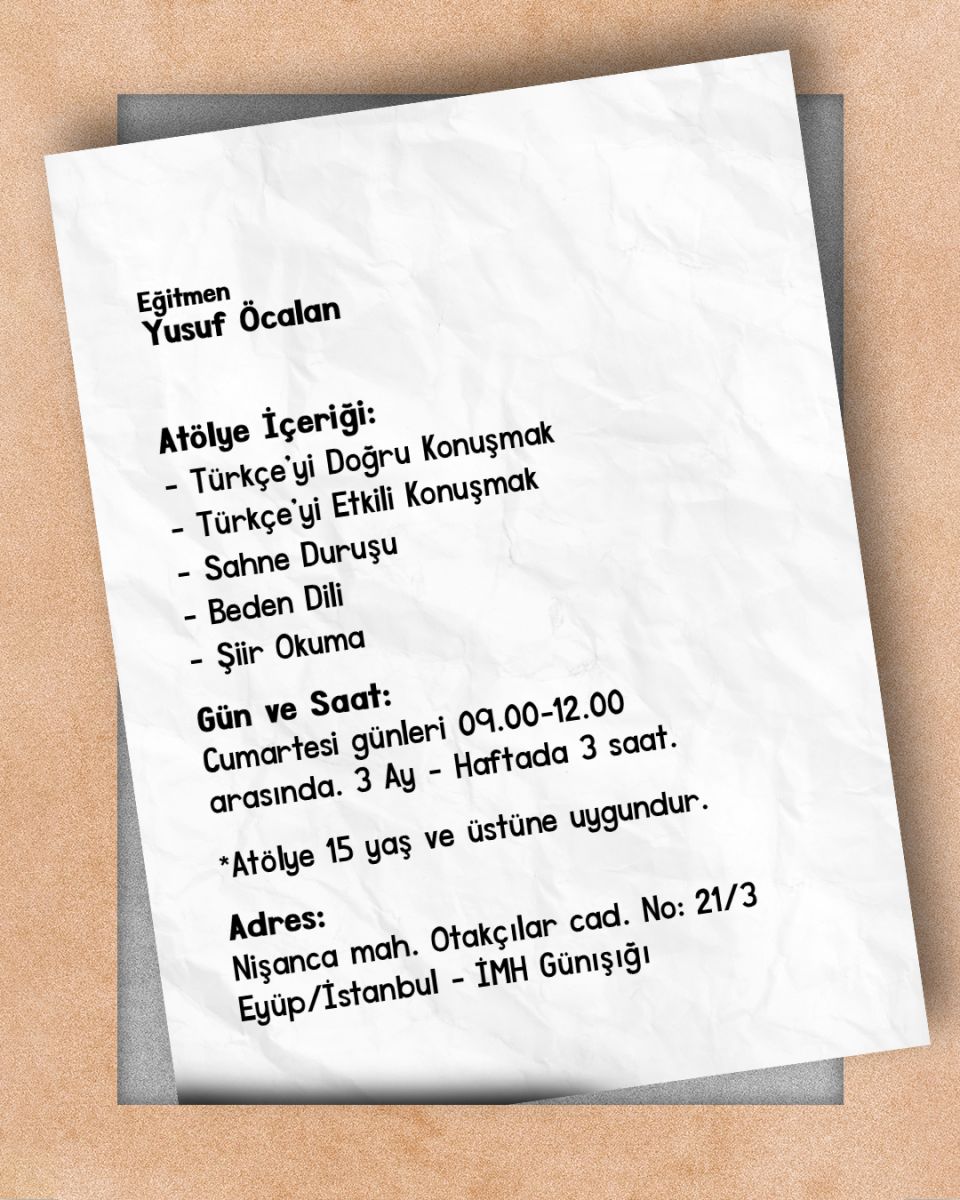 Eğitmen
Yusuf Öcalan
Atölye İçeriği:
- Türkçe'yi Doğru Konuşmak
- Türkçe'yi Etkili Konuşmak
- Sahne Duruşu
- Beden Dili
- Şiir Okuma
Gün ve Saat:
Cumartesi günleri 09.00-12.00
arasında. 3 Ay - Haftada 3 saat.
*Atölye 15 yaş ve üstüne uygundur.
Adres:
Nişanca mah. Otakçılar cad. No: 21/3
Eyüp/İstanbul - İMH Günışığı